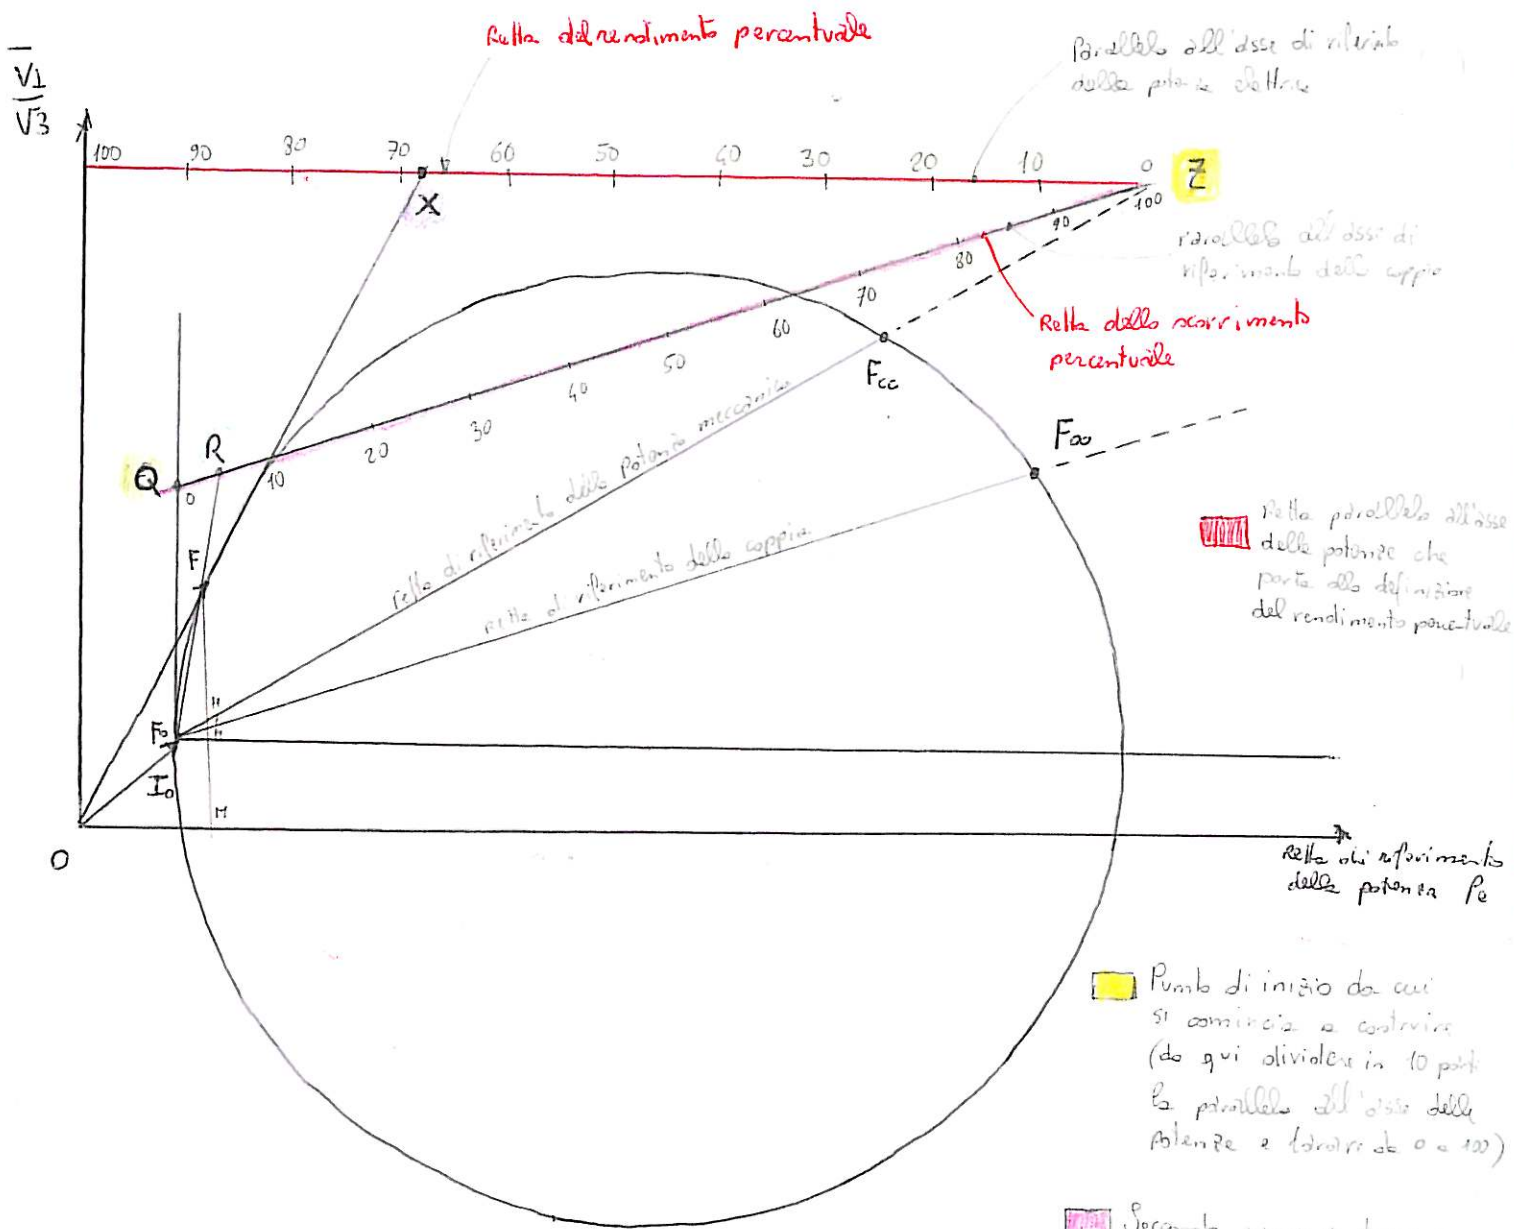 V1
√3
Retta del rendimento percentuale
Parallela all'asse di riferimento
della potenza elettrica
100 90 80 70 60 50 40 30 20 10 0
Z
X
100
90
80
70
60
50
40
30
20
10
0
parallela all'asse di
riferimento della coppia
Retta dello scorrimento
percentuale
Fcc
F∞
Q
R
F
retta di riferimento della potenza meccanica
retta di riferimento della coppia
Retta parallela all'asse
delle potenze che
porta alla definizione
del rendimento percentuale
F0
I0
H
H
M
O
Retta di riferimento
della potenza Pe
Punto di inizio da cui
si comincia a costruire
(da qui dividere in 10 parti
la parallela all'asse delle
potenze e da 0 a 100)